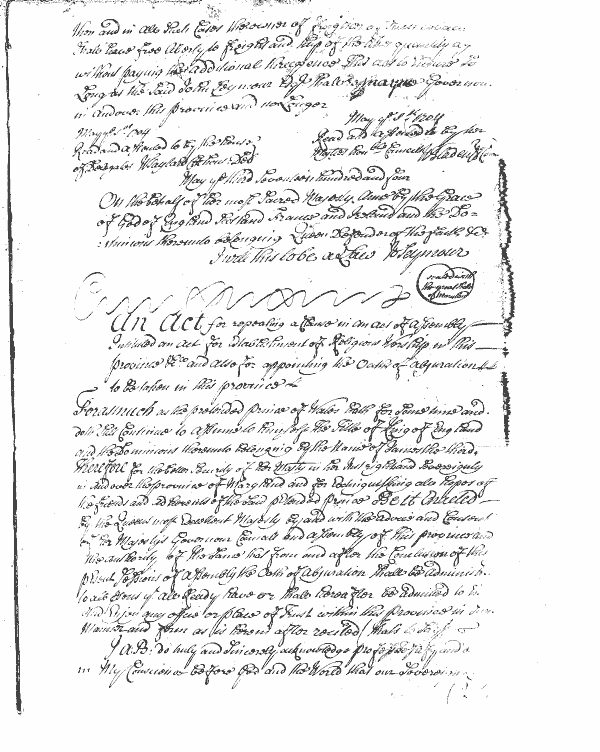 then and in all such Cases the owner of
have free liberty to freight and ship of the like quantity as
without paying the additional this act to Endure so
Long as the said John Seymour Esqr shall Governour
in and over this province and no Longer
May ye 3d 1704
Read and assented to by the house
of Delegates W Taylard Cl hous Del
May ye 3d 1704
Read and assented to by her
Majtys honble Councill
May ye third Seventeen hundred and four
On the behalf of her most Sacred Majesty Anne by the Grace
of God of England Scotland France and Ireland and the Do=
minions thereunto belonging Queen Defender of the Faith &c
I will this to be a Law Jo Seymour
sealed with
the great seale
of Maryland
An Act for repealing a Clause in an Act of Assembly
Intituled an Act for Establishment of Religious Worship in this
province &c and also for appointing the Oath of Abjuration
to be taken in this province
Forasmuch as the pretended prince of Wales hath for some time and
doth still Continue to assume to himself the Title of King of England
and the Dominions thereunto belonging by the Name of James the third
Therefore for the better Security of her Majty in her Just right and Sovereignty
in and over the province of Maryland and for Extinguishing all hopes of
the friends and adherents of the said pretended prince Be it Enacted
by the Queens most Excellent Majesty by and with the advice and Consent
of her Majestys Governour Councill and Assembly of this province and
the authority of the same that from and after the Conclusion of this
present Sessions of Assembly the Oath of Abjuration shall be administred
to all persons yt already have or shall hereafter be admitted to
and Enjoy any office or place of Trust within this Province in
Manner and form as is herein after recited that is to
I A:B: do truly and sincerely acknowledge profess testify and
in My Conscience before God and the World that our Sovereign